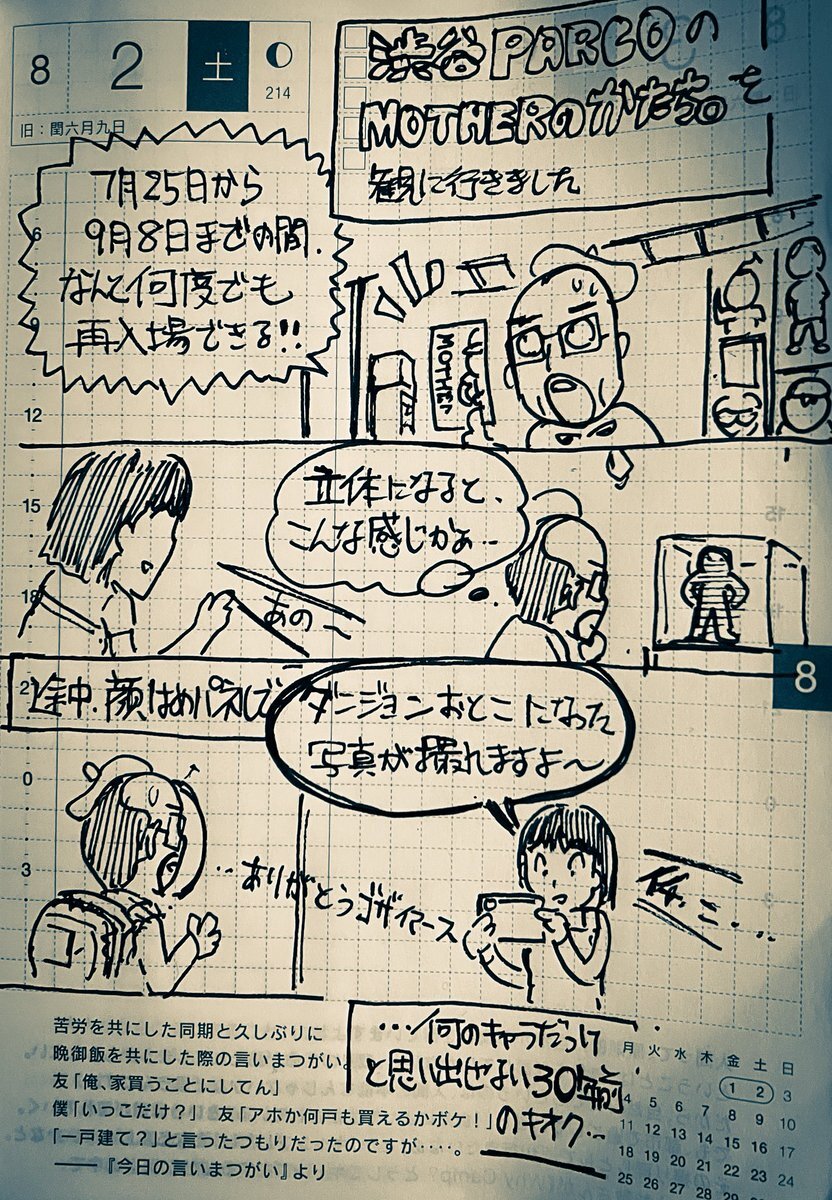 8 2 土
214
旧：閏六月九日
渋谷PARCOの
MOTHERのかたち。を
観に行きました
7月25日から
9月8日までの間、
なんと何度でも
再入場できる!!
MOTHER
立体になると、
こんな感じかぁ…
あの〜
途中、顔はめパネルで
ダンジョンおとこになった
写真が撮れますよ〜
…ありがとうゴザイマース
…何のキャラだっけ
と思い出せない30年前
のキオク…
6
12
15
18
21
0
3
8
苦労を共にした同期と久しぶりに
晩御飯を共にした際の言いまつがい。
友「俺、家買うことにしてん」
僕「いっこだけ？」 友「アホか何戸も買えるかボケ！」
「一戸建て？」と言ったつもりだったのですが‥‥。
――『今日の言いまつがい』より
月 火 水 木 金 土 日
1 2 3
4 5 6 7 8 9 10
11 12 13 14 15 16 17
18 19 20 21 22 23 24
25 26 27 28 29